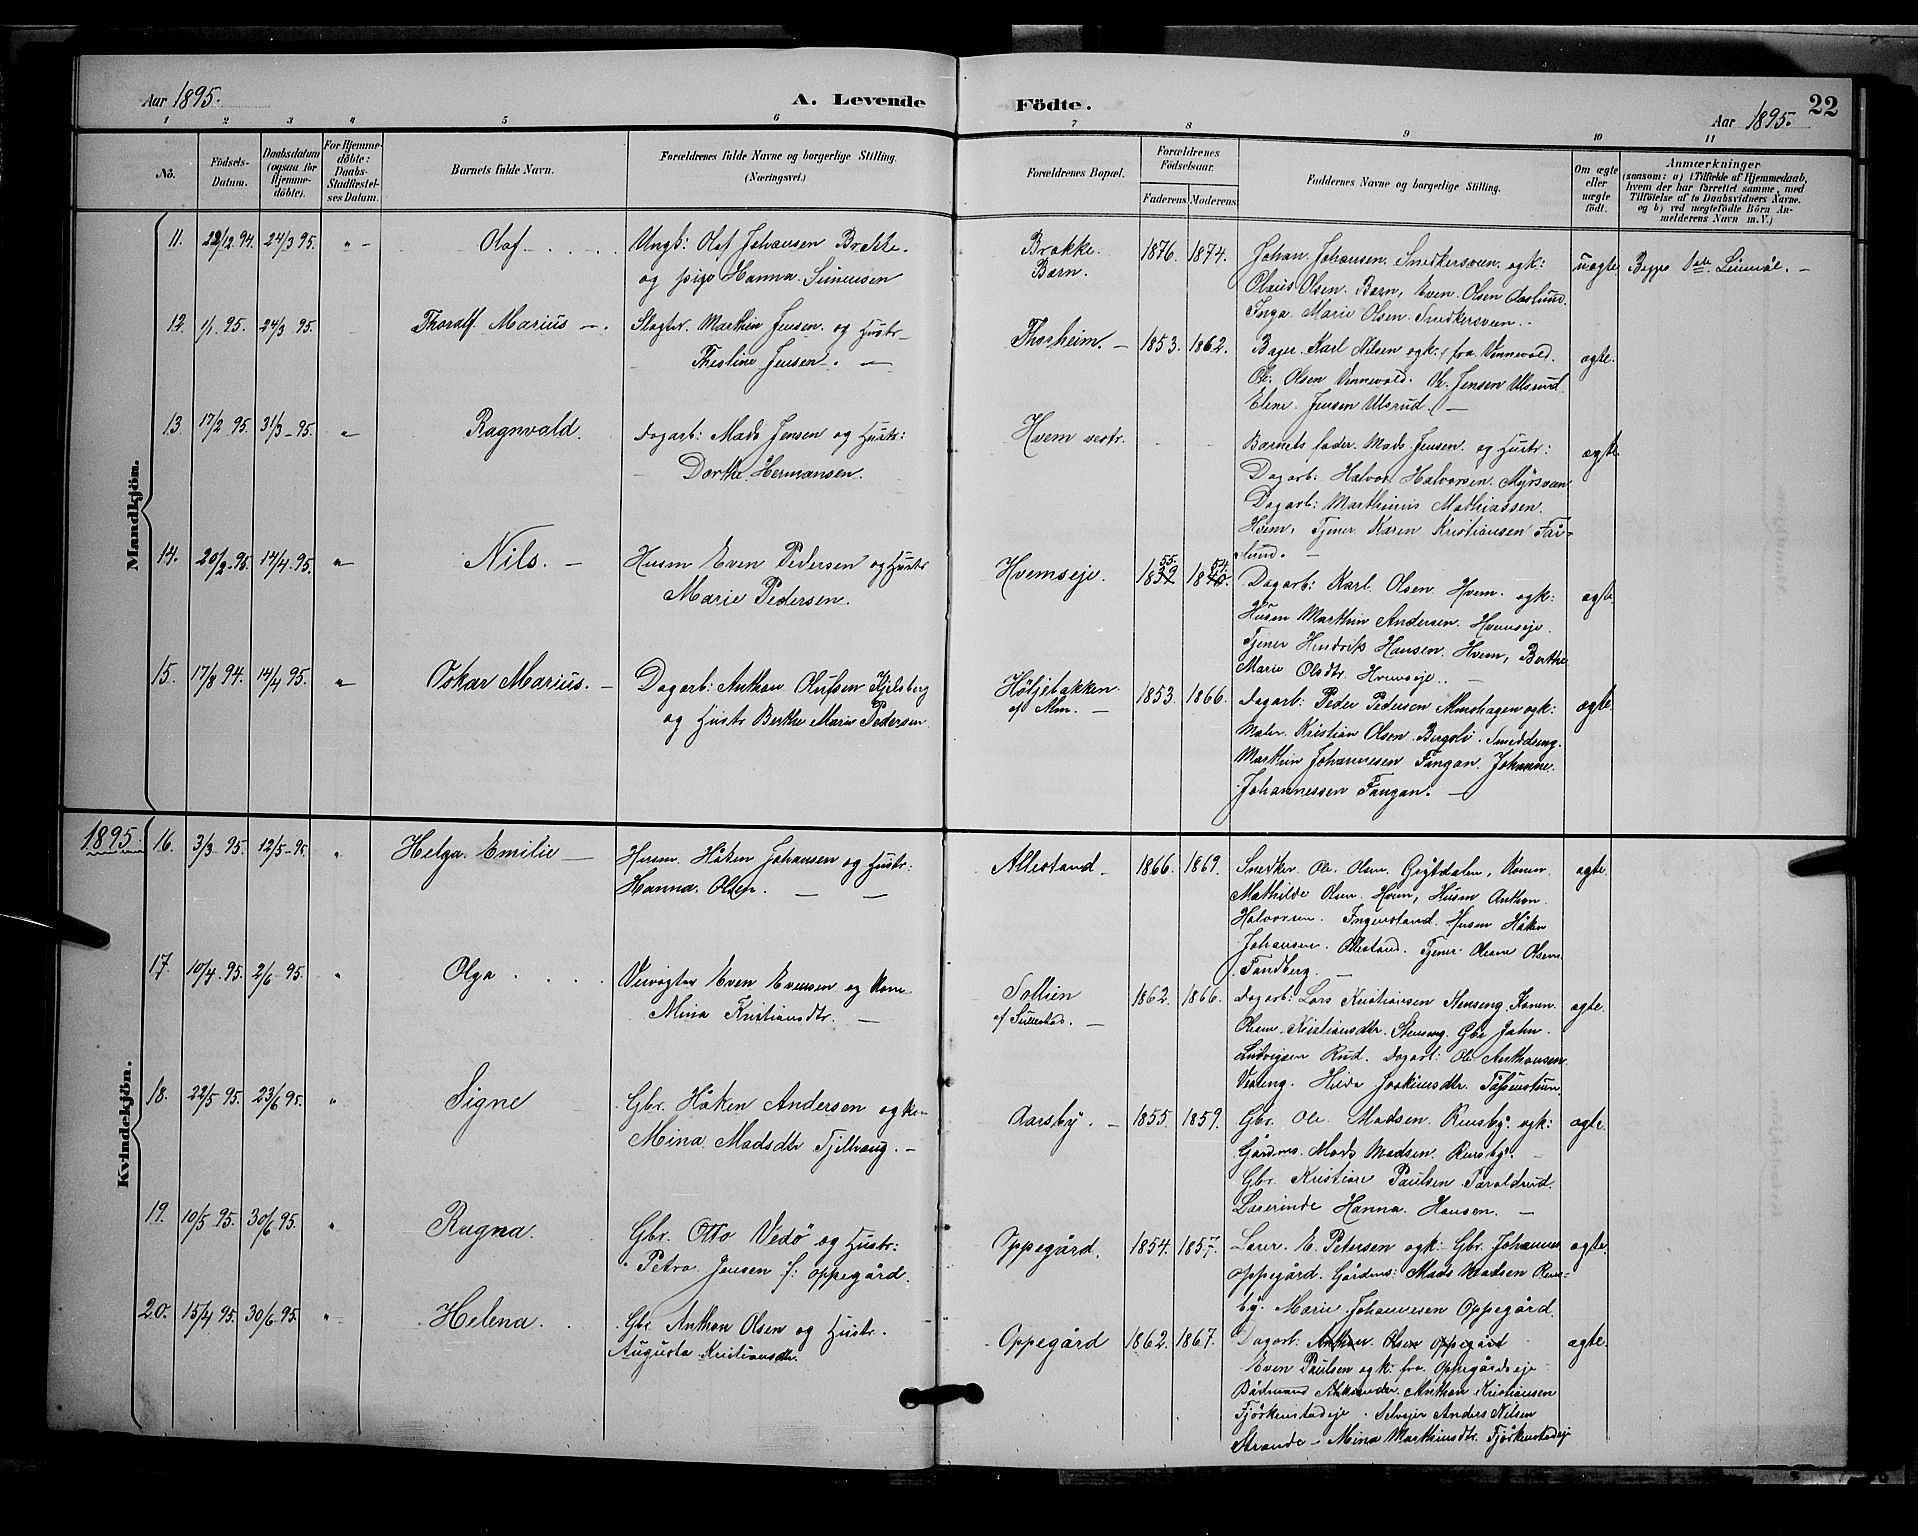 Aar 1895. A. Levende Födte. Aar 1895. 22
1 2 3 4 5 6 7 8 9 10 11
No. Födsels-Datum. Daabsdatum (ogsaa for Hjemme-döbte). For Hjemme-döbte: Daabs-Stadfæstel-ses Datum. Barnets fulde Navn. Forældrenes fulde Navne og borgerlige Stilling. (Næringsvei.) Forældrenes Bopæl. Forældrenes Födselsaar. Faderens Moderens Faddernes Navne og borgerlige Stilling. Om ægte eller uægte födt. Anmærkninger (saasom: a) i Tilfælde af Hjemmedaab, hvem der har forrettet samme, med Tilföielse af to Daabsvidners Navne, og b) ved uægtefödte Börn An-melderens Navn m. V.)
Mandkjön.
11. 22/12 94. 24/3 95. " – Olaf
Ungk: Olaf Johansen Brække
og pige Hanna Simensen
Brække.
Børn.
1876. 1874.
Johan Johansen Snekkersveen. ogk:
Olaus Olsen. Børn, Even Olsen Aaslund.
Inga Marie Olsen Snekkersveen.
uægte
12. 1/1 95. 24/3 95. Thoralf Marius –
Slagter. Marthin Jensen og Hustr
Theoline Jensen –
Thorheim. –
1853. 1862.
Bager Karl Nilsen ogk: fra Vinnevold.
Ole Olsen Vinnevold. K. Jensen Ulsrud.
Eline Jensen Ulsrud. –
ægte.
13. 17/2 95. 31/3–95. " Ragnvald.
Dagarb: Mads Jensen og Hustr:
Dorthe Hermansen.
Hvem vestr.
Barnets fader. Mads Jensen. og Hustr:
Dagarb: Halvor Halvorsen. Myrsveen
Dagarb: Marthinius Mathiassen.
Hvem, Tjener Karen Kristiansen Får-
lund. –
ægte
14. 20/2–95. 14/4–95. " Nils. –
Husm Even Pedersen og Hustr
Marie Pedersen.
Hvemseje.
55. 54.
1839 1840.
Dagarb: Karl Olsen. Hvem. ogk:
Husm Marthin Andersen. Hvemseje.
Tjener Hendrik Hansen. Hvem, Berthe
Marie Olsdtr. Hvemseje. –
ægte
15. 17/8 94. 14/4 95. " Oskar Marius. –
Dagarb: Anthon Olufsen Kjelsberg
og Hustr Berthe Marie Pedersen
Høljebakken
af Alm. –
1853. 1866.
Dagarb: Peder Pederson Almshagen ogk:
Maler. Kristian Olsen Bergsli. Smeddseng.
Marthin Johannesen Fangan. Johanne
Johannessen Fangan. –
ægte
1895.
Kvindekjön.
16. 3/3 95. 12/5–95. " Helga Emilie –
Husm. Håken Johansen og Hustr:
Hanna Olsen. – –
Allestand –
1866. 1869.
Snedker Ole Olsen Grytdalen, Konen
Mathilde Olsen. Hvem, Husm Anthon
Halvorsen. Ingerstand. Husm Håken
Johansen. Allestand. Tjener Oleane Olsen
Sandberg. –
ægte.
17. 10/4–95. 2/6–95. " Olga
Veivogter Even Evensen og Kone
Mina Kristiansdtr. –
Sollien
af Sællestad. –
1862. 1866.
Dagarb: Lars Kristiansen Stenseng Konen
Oleane Kristiansdtr. Stenseng Gbr John
Ludvigsen Rud. Dagarb: Ole Anthonsen
Veseng. Hilda Joakimsdtr.
ægte.
18. 22/5 95. 23/6 95. " Signe
Gbr. Håken Andersen og k:
Mina Madsdtr Tjelvang. –
Aarsby. –
1855. 1859.
Gbr. Ole Madsen Rensby. ogk:
Gårdms. Mads Madsen. Rensby. –
Gbr. Kristian Paulsen Taraldrud.
Lærerinde Hanna Hansen. –
ægte.
19. 10/5 95. 30/6 95. " Ragna.
Gbr. Otto Vedø og Hustr:
Petra Jensen f: oppegård.
Oppegård.
1854. 1857.
Lærer. E. Petersen ogk: Gbr. Johannes
oppegård. Gårdms: Mads Madsen Rens-
by. Marie Johannesen Oppegård.
ægte.
20. 15/4 95. 30/6–95. " Helena.
Gbr Anthon Olsen og Hustr.
Augusta Kristiansdtr.
Oppegård
1862. 1867.
Dagarb: Anthon Olsen oppegård
Even Paulsen ogk: fra. Oppegårdseje
Bådmand Aleksander. Anthon Kristiansen
Fjørkenstadeje. Selvejer Anders Nilsen
Strande – Mina Marthinsdtr. Fjørkenstadeje
ægte.